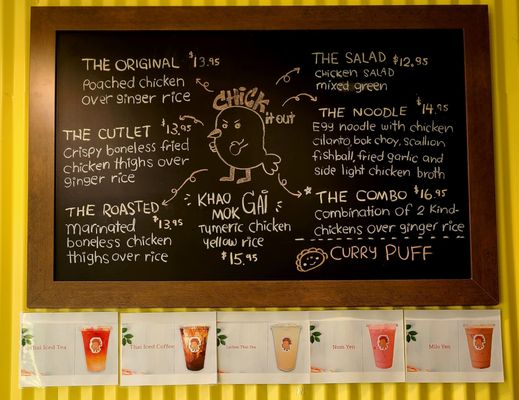 THE ORIGINAL $13.95
Poached chicken
over ginger rice
THE CUTLET $13.95
Crispy boneless fried
chicken thighs over
ginger rice
THE ROASTED $13.95
marinated
boneless chicken
thighs over rice
CHICK
it out
KHAO
MOK GAI
tumeric chicken
yellow rice
$15.95
THE SALAD $12.95
chicken SALAD
mixed green
THE NOODLE $14.95
Egg noodle with chicken
cilanto, bok choy, scallion
fishball, fried garlic and
side light chicken broth
THE COMBO $16.95
combination of 2 Kind-
chickens over ginger rice
CURRY PUFF
Thai Iced Tea
Thai Iced Coffee
Thai Tea
Nom Yen
Milo Yen